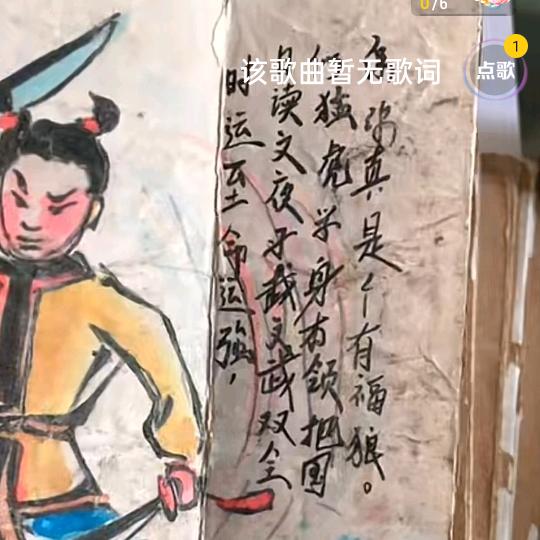 0/6
1
点歌
该歌曲暂无歌词
你真是个有福狼。
猛虎学身有领把国
读文夜子载文武双全
时运至命运强，